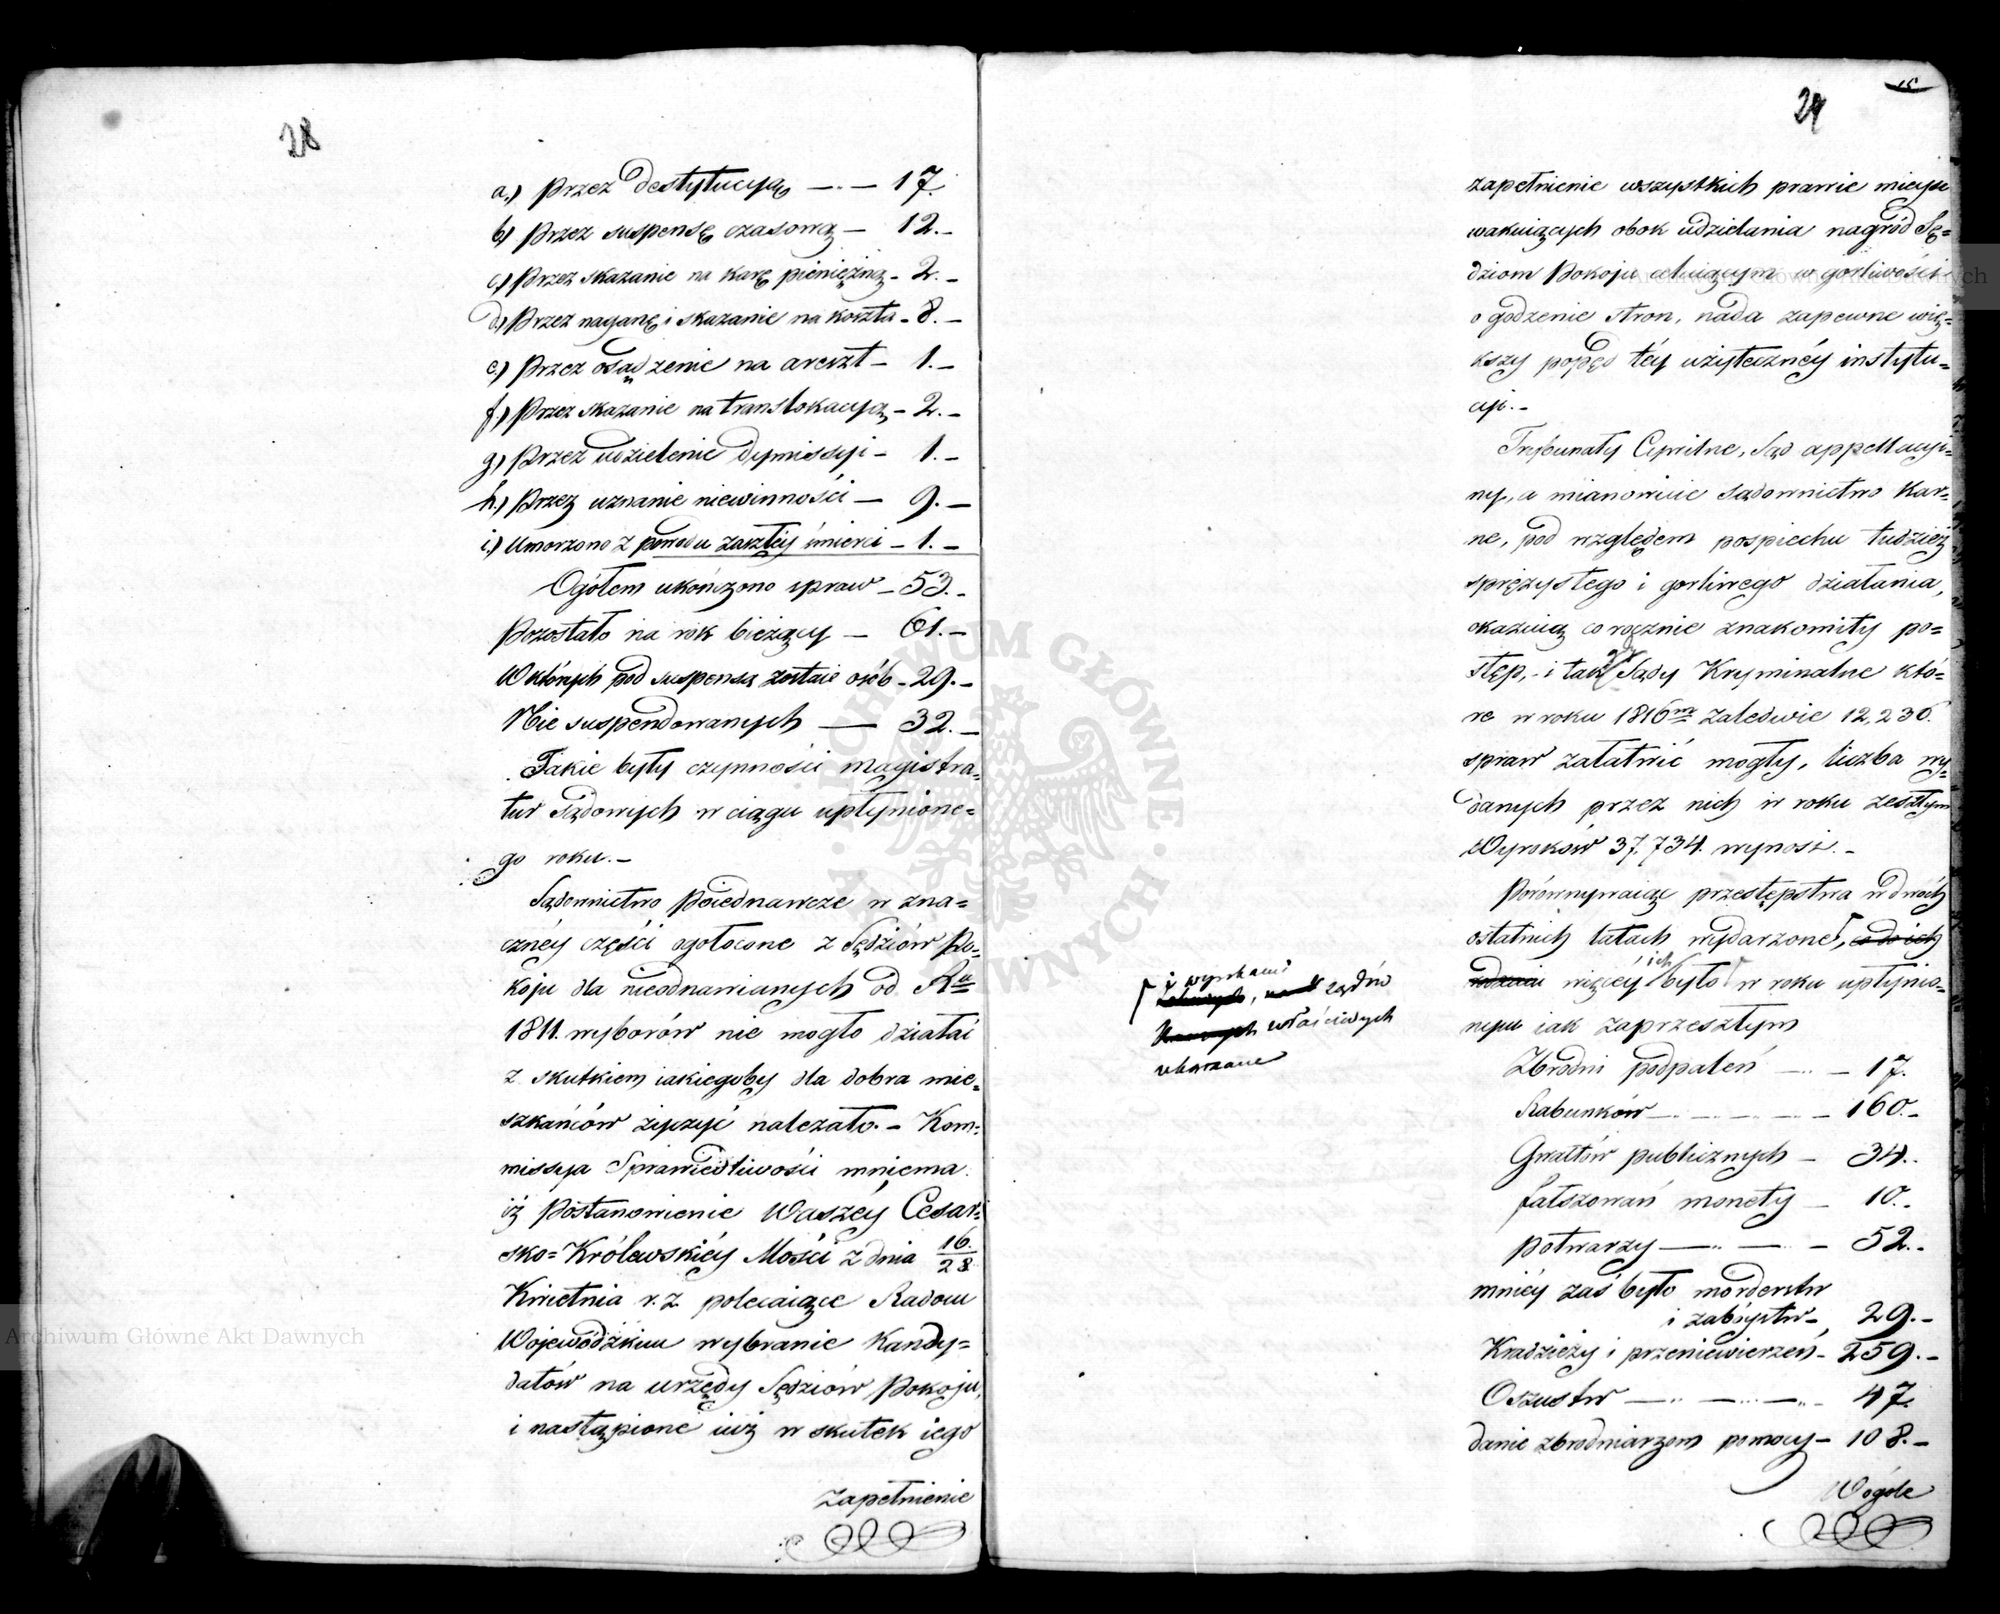 28
a.) Przez destytucyą — 17.
b) Przez suspensę czasową — 12.
c) Przez skazanie na karę pieniężną - 2.
d) Przez naganę i skazanie na koszta - 8.
e) Przez osądzenie na areszt - 1.
f.) Przez skazanie na translokacyą - 2.
g) Przez udzielenie dymissyi - 1.
h.) Przez uznanie niewinności - 9.
i.) Umorzono z powodu zaszłéy śmierci - 1.
Ogółem ukończono spraw - 53.
Pozostało na rok bieżący - 61.
W których pod suspensą zostaie osób - 29.
Nie suspendowanych — 32.
Takie były czynności magistra=
tur sądowych w ciągu upłynione=
go roku.
Sądownictwo Poiednawcze w zna=
cznéy części ogołocone z Sędziów Po=
koju dla nieodnawianych od Ru
1811. wyborów nie mogło działać
z skutkiem iakiegoby dla dobra mie=
szkańców życzyć należało. - Kom=
missya Sprawiedliwości mniema
iż Postanowienie Waszéy Cesar=
sko=Królewskiéy Mości z dnia 16/28
Kwietnia r. z. polecaiące Radom
Wojewódzkim wybranie Kandy=
datów na urzędy Sędziów Pokoju,
i nastąpione iuż w skutek iego
zapełnienie
Archiwum Główne Akt Dawnych
15
29
zapełnienie wszystkich prawie mieysc
wakuiących obok udzielania nagród Sę=
dziom Pokoju celuiącym w gorliwości
o godzenie stron, nada zapewne wię=
kszy popęd téy użytecznéy instytu=
cyi.
Trybunały Cywilne, Sąd appellacyi=
ny, a mianowicie sądownictwo Kar=
ne, pod względem pospiechu tudzież
sprężystego i gorliwego działania,
okazuią corocznie znakomity po=
stęp, - i tak Sądy Kryminalne któ=
re w roku 1816m zaledwie 12,236.
spraw załatwić mogły, liczba wy=
danych przez nich w roku zeszłym
Wyroków 37,734. wynosi.
Porównywaiąc przestępstwa w dwóch
ostatnich latach wydarzone, co do ich
rodzaiu więcéy ich było w roku upłynio=
nym iak zaprzeszłym
i wyrokami
sądów
właściwych
ukarane
Zbrodni podpaleń — 17.
Rabunków — 160.
Gwałtów publicznych — 34.
fałszowań monety — 10.
potwarzy — 52.
mniéy zaś było morderstw
i zabóystw - 29.
Kradzieży i przeniewierzeń - 259.
Oszustw — 47.
danie zbrodniarzom pomocy - 108.
Wogóle
Archiwum Główne Akt Dawnych
ARCHIWUM GŁÓWNE · AKT DAWNYCH ·